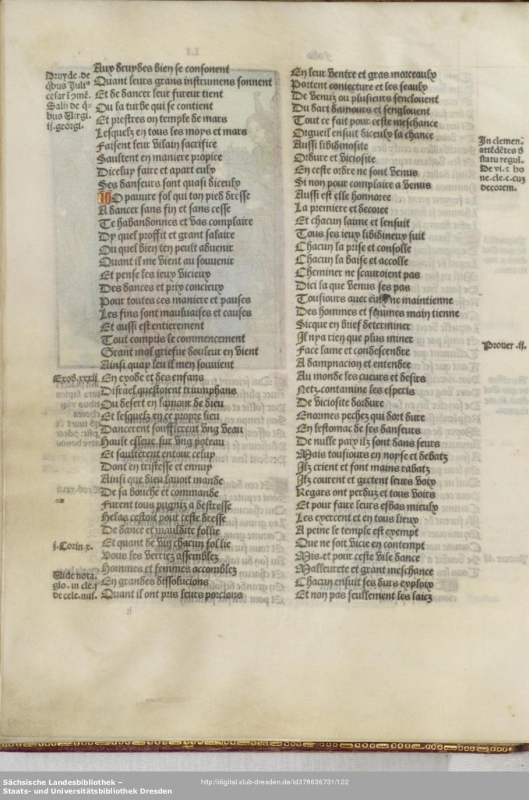 Aux druydes bien se consonent
Quant leurs grans instrumens sonnent
Et de dancer leur fureur tient
Ou sa turbe qui se contient
Et prestres on temple de mars
Lesquelz en tous les moys et mars
Faisent leur vilain sacrifice
Saultent en maniere propice
Diceluy faire et apart eulx
Ses danseurs sont quasi diceulx
O pauure fol qui ton pied dresse
A dancer sans fin et sans cesse
Te habandonnes et vas complaire
Dy quel proffit et grant salaire
Ou quel bien ten peult aduenir
Quant il me vient au souuenir
Et pense les ieux vicieux
Des dances et prix concieux
Pour toutes ces maniere et pauses
Les fins sont mauluaises et causes
Et aussi est entierement
Tout compris le commencement
Grant mal griefue douleur en vient
Ainsi quay leu il men souuient
En exode et des enfans
Disrael questoient triumphans
Ou desert en lamour de dieu
Et lesquelz en ce propre lieu
Dancerent souffrerent vng veau
Hault esleue sur vng poteau
Et saulterent entour celuy
Dont en tristesse et ennuy
Ainsi que dieu lauoit mande
De sa bouche et commande
Furent tous pugniz a destresse
Helas cestoit pour ceste dresse
De dance et mauldite follie
Et quant de vin chacun sollie
Vous les verriez assemblez
Hommes et femmes accomblez
En grandes dissolucions
Quant il ont pris leurs porcions
Druyde. de
qbus Juli⁹
cesar
Salii de q-
bus Virgi.
ij. georgi.
Exod.xxxii
i. Corin. x.
Vide nota.
glo. in cle. i
de cele. mis.
En leur ventre et gras morceaulx
Portent coniecture et les seaulx
De venuz ou plusieurs senclouent
Du dart damours et senglouent
Tout ce fait pour ceste meschance
Orgueil ensuit diceulx la chance
Aussi libidinosite
Ordure et viciosite
En ceste ordre ne sont venus
Si non pour complaire a Venus
Aussi est elle honnoree
La premiere et decoree
Et chacun laime et lensuit
Tous ses ieux libidineux suit
Chacun la prise et consolle
Chacun la baise et accolle
Cheminer ne scauroient pas
Dici la que venus ses pas
Tousiours auec eulx ne maintienne
Des hommes et femmes main tienne
Sicque en brief determiner
Il nya rien que plus miner
Face lame et condescendre
A dampnacion et entendre
Au monde les cueurs et desirs
Netz contamine les esperis
De viciosite dordure
Enormes pechez qui dort dure
En lestomac de ses danseurs
De nulle paix ilz sont dans seurs
Mais tousiours en noyse et debatz
Ilz crient et font mains rabatz
Ilz courent et gectent leurs voix
Regars ont perduz et tous voirs
Et pour faire leurs esbas mieulx
Les exercent et en tous lieux
A peine le temple est exempt
Que ne soit vicie en contempt
Mis. et pour ceste vile dance
Malleurete et grant meschance
Chacun ensuit ses durs exploix
Et non pas seullement les laiz
In clemen.
attēdētes d
statu regul.
De vi. t ho
ne. cle. c. cūz
decorem.
Prouer. ij.
Sächsische Landesbibliothek –
Staats- und Universitätsbibliothek Dresden
http://digital.slub-dresden.de/id378636731/122